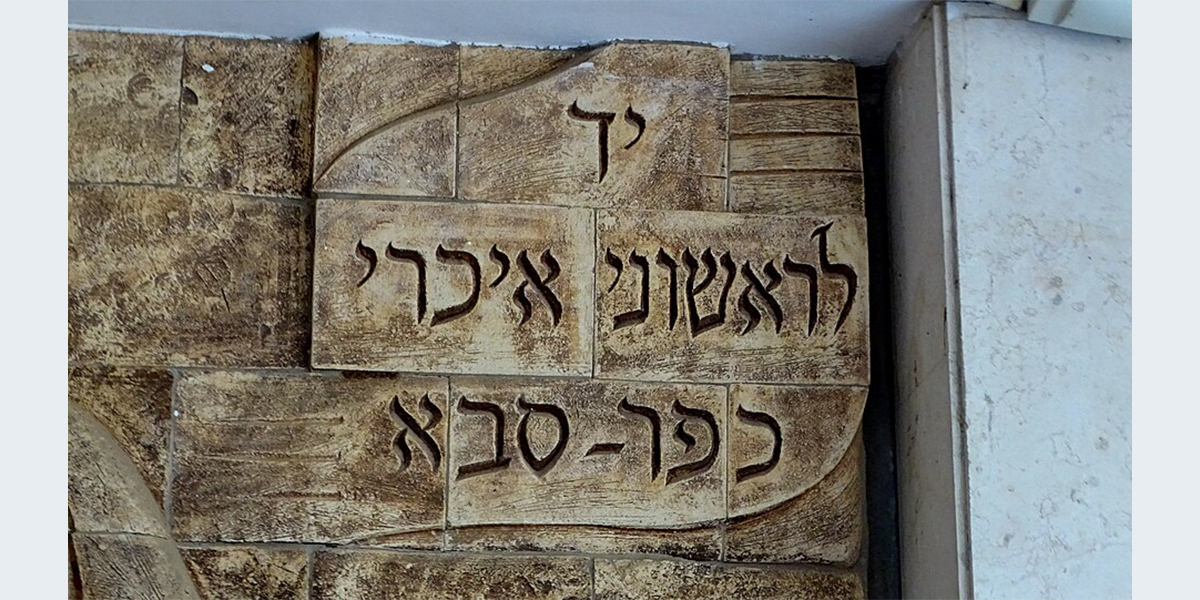 יד
לראשוני איכרי
כפר-סבא